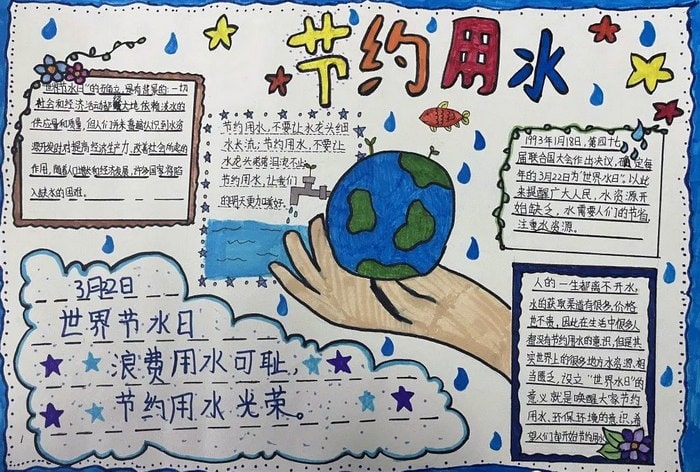 节约用水
"世界节水日"的确立,是有背景的.一切
社会和经济活动都极大地依赖淡水的
供应量和质量,但人们并未普遍认识到水资
源开发对提高经济生产力,改善社会福利的
作用,随着人口增长和经济发展,许多国家将陷
入缺水的困难。
节约用水,不要让水龙头细
水长流;节约用水,不要让
水龙头
节约用水,让我们
的明天更加美好.
1993年1月18日,第四十七
届联合国大会作出决议,确定每
年的3月22日为"世界水日".以此
来提醒广大人民,水资源开
始缺乏,水需要人们的节省,
注重水资源。
3月22日
世界节水日
浪费用水可耻,
节约用水光荣。
人的一生都离不开水,
水的获取渠道有很多,价格
也不贵,因此在生活中很多人
都没有节约用水的意识,但是其
实世界上的很多地方水资源相
当匮乏,设立"世界水日"的
意义就是唤醒大家节约
用水、环保环境的意识,希
望人们都开始节约用水